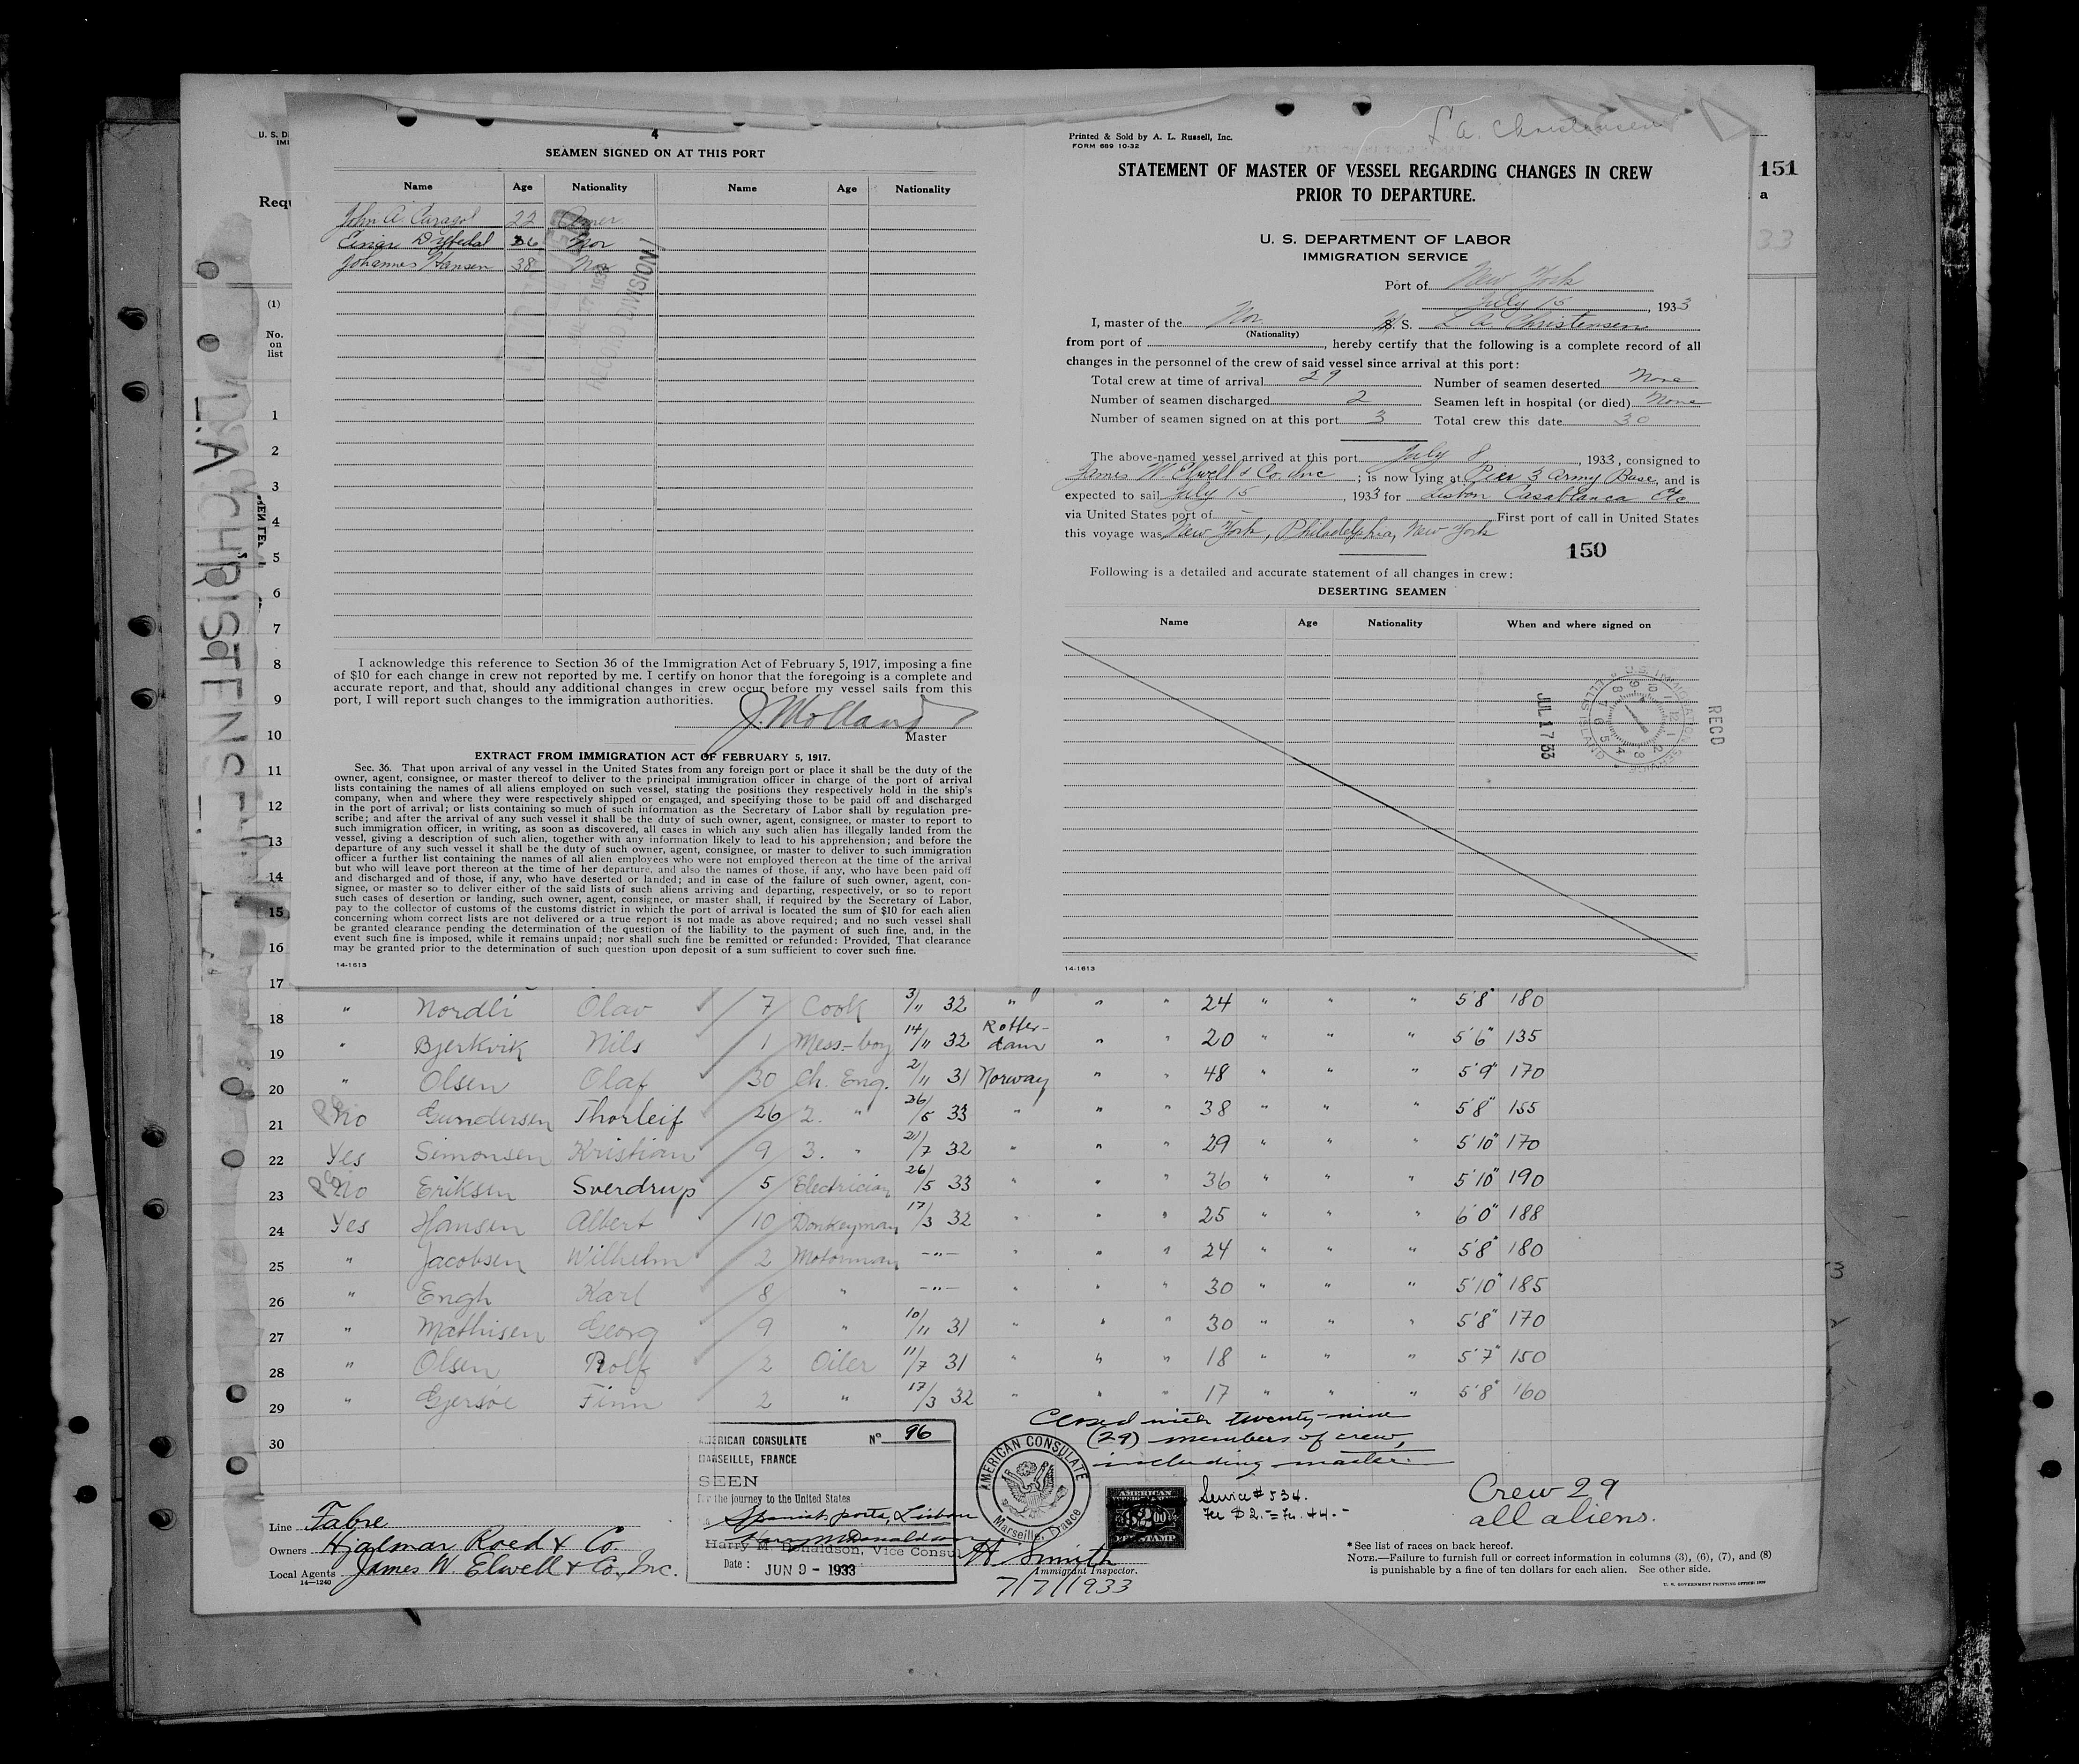 4
SEAMEN SIGNED ON AT THIS PORT
Name Age Nationality Name Age Nationality
John A. 22 Amer.
Einar 26 Nor
Johannes Hansen 38 Nor
RECORD DIVISION
I acknowledge this reference to Section 36 of the Immigration Act of February 5, 1917, imposing a fine
of $10 for each change in crew not reported by me. I certify on honor that the foregoing is a complete and
accurate report, and that, should any additional changes in crew occur before my vessel sails from this
port, I will report such changes to the immigration authorities.
J. Molland
Master
EXTRACT FROM IMMIGRATION ACT OF FEBRUARY 5, 1917.
Sec. 36. That upon arrival of any vessel in the United States from any foreign port or place it shall be the duty of the
owner, agent, consignee, or master thereof to deliver to the principal immigration officer in charge of the port of arrival
lists containing the names of all aliens employed on such vessel, stating the positions they respectively hold in the ship's
company, when and where they were respectively shipped or engaged, and specifying those to be paid off and discharged
in the port of arrival; or lists containing so much of such information as the Secretary of Labor shall by regulation pre-
scribe; and after the arrival of any such vessel it shall be the duty of such owner, agent, consignee, or master to report to
such immigration officer, in writing, as soon as discovered, all cases in which any such alien has illegally landed from the
vessel, giving a description of such alien, together with any information likely to lead to his apprehension; and before the
departure of any such vessel it shall be the duty of such owner, agent, consignee, or master to deliver to such immigration
officer a further list containing the names of all alien employees who were not employed thereon at the time of the arrival
but who will leave port thereon at the time of her departure, and also the names of those, if any, who have been paid off
and discharged and of those, if any, who have deserted or landed; and in case of the failure of such owner, agent, con-
signee, or master so to deliver either of the said lists of such aliens arriving and departing, respectively, or so to report
such cases of desertion or landing, such owner, agent, consignee, or master shall, if required by the Secretary of Labor,
pay to the collector of customs of the customs district in which the port of arrival is located the sum of $10 for each alien
concerning whom correct lists are not delivered or a true report is not made as above required; and no such vessel shall
be granted clearance pending the determination of the question of the liability to the payment of such fine, and, in the
event such fine is imposed, while it remains unpaid; nor shall such fine be remitted or refunded: Provided, That clearance
may be granted prior to the determination of such question upon deposit of a sum sufficient to cover such fine.
14-1613
L. A. Christensen
Printed & Sold by A. L. Russell, Inc.
FORM 689 10-32
STATEMENT OF MASTER OF VESSEL REGARDING CHANGES IN CREW
PRIOR TO DEPARTURE.
U. S. DEPARTMENT OF LABOR
IMMIGRATION SERVICE
Port of New York
July 15, 1933
I, master of the Nor. S. S. L A Christensen
(Nationality)
from port of , hereby certify that the following is a complete record of all
changes in the personnel of the crew of said vessel since arrival at this port:
Total crew at time of arrival 29 Number of seamen deserted None
Number of seamen discharged 2 Seamen left in hospital (or died) None
Number of seamen signed on at this port 3 Total crew this date 30
The above-named vessel arrived at this port July 8, 1933, consigned to
James W. Elwell & Co. Inc ; is now lying at Pier 3 Army Base, and is
expected to sail July 15, 1933 for Lisbon Casablanca Etc
via United States port of — First port of call in United States
this voyage was New York, Philadelphia, New York
150
Following is a detailed and accurate statement of all changes in crew:
DESERTING SEAMEN
Name Age Nationality When and where signed on
RECD
U. S. IMMIGRATION SERVICE ELLIS ISLAND
JUL 17 33
14-1613
151
a
33
U. S. D
IMI
Requ
(1)
No.
on
list
L.A CHRISTENSEN
1
2
3
4
5
6
7
8
9
10
11
12
13
14
15
16
17
18 " Nordli Olav 7 Cook 3/11 32 " " " 24 " " " 5'8" 180
19 " Bjerkvik Nils 1 Mess-boy 14/11 32 Rotter-dam " " 20 " " " 5'6" 135
20 " Olsen Olaf 30 Ch. Eng. 2/11 31 Norway " " 48 " " " 5'9" 170
21 No Gundersen Thorleif 26 2. " 26/5 33 " " " 38 " " " 5'8" 155
22 Yes Simonsen Kristian 9 3. " 21/7 32 " " " 29 " " " 5'10" 170
23 No Eriksen Sverdrup 5 Electrician 26/5 33 " " " 36 " " " 5'10" 190
24 Yes Hansen Albert 10 Donkeyman 17/3 32 " " " 25 " " " 6'0" 188
25 " Jacobsen Wilhelm 2 Motorman -"- " " " 24 " " " 5'8" 180
26 " Engh Karl 8 " -"- " " " 30 " " " 5'10" 185
27 " Mathisen Georg 9 " 10/11 31 " " " 30 " " " 5'8" 170
28 " Olsen Rolf 2 Oiler 11/7 31 " " " 18 " " " 5'7" 150
29 " Gjersøe Finn 2 " 17/3 32 " " " 17 " " " 5'8" 160
30
Closed with twenty-nine
(29) members of crew,
including master.
AMERICAN CONSULATE No 96
MARSEILLE, FRANCE
SEEN
For the journey to the United States
Spanish ports, Lisbon
Harry M. Donaldson
Harry M. Donaldson, Vice Consul
Date: JUN 9 - 1933
AMERICAN CONSULATE
Marseille, France
AMERICAN
$2.00
FEE STAMP
Service # 534.
Fee $2.= Fr. 44.-
Crew 29
all aliens.
H Smith
Immigrant Inspector.
7/7/1933
Line Fabre
Owners Hjalmar Roed & Co.
Local Agents James W. Elwell & Co., Inc.
14—1240
* See list of races on back hereof.
NOTE.—Failure to furnish full or correct information in columns (3), (6), (7), and (8)
is punishable by a fine of ten dollars for each alien. See other side.
U. S. GOVERNMENT PRINTING OFFICE